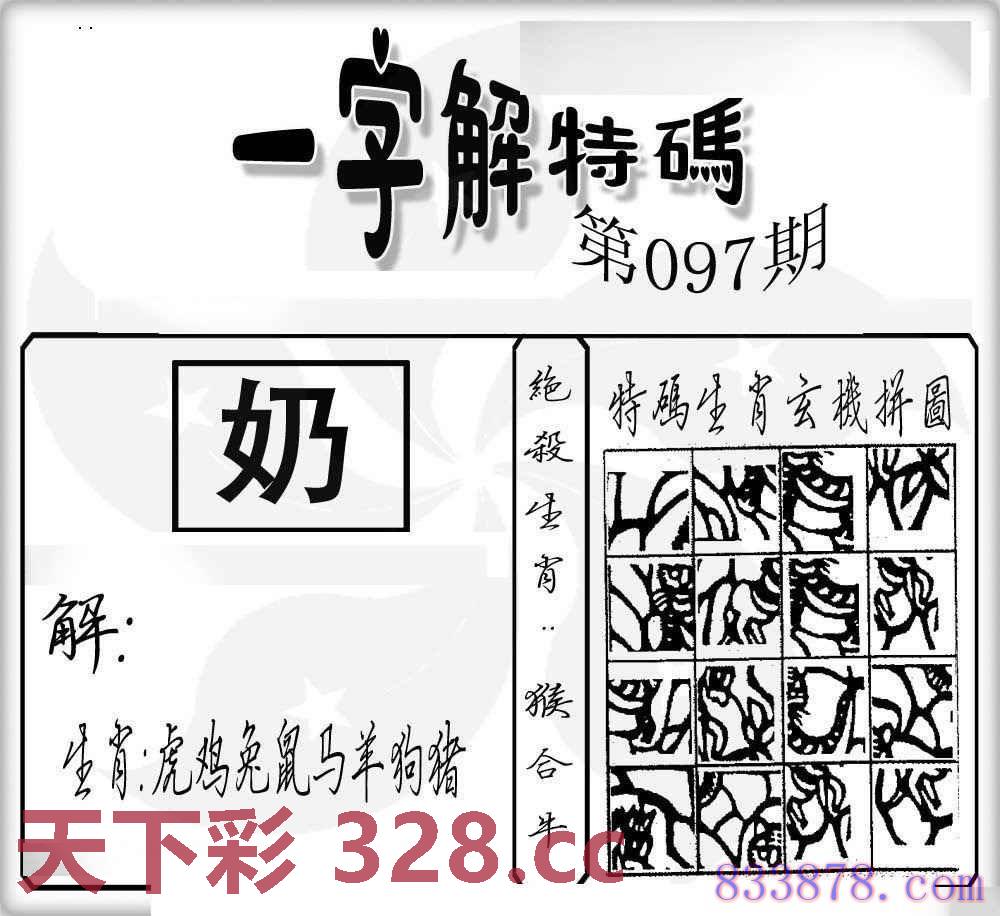 一字解特碼
第097期
奶
解:
生肖:虎鸡兔鼠马羊狗猪
絶殺生肖:猴合牛
特碼生肖玄機拼圖
天下彩 328.cc
833878.com